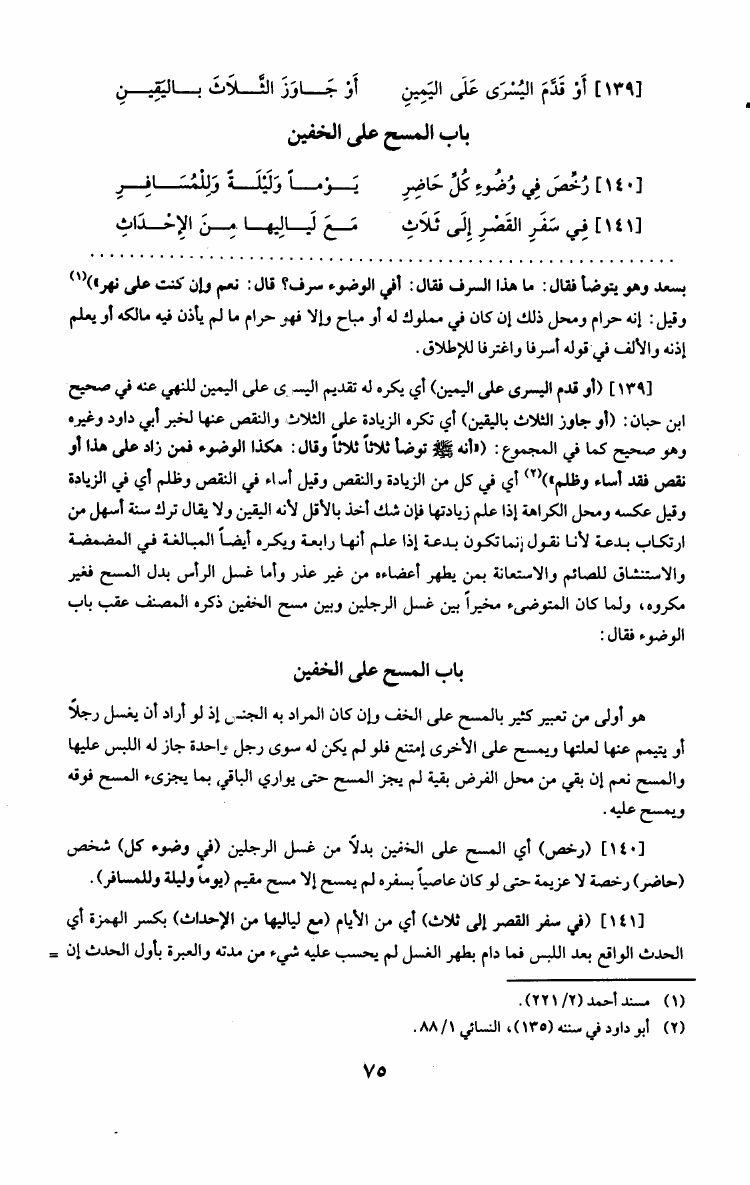 [١٣٩] أَوْ قَدَّمَ اليُسْرَى عَلَى اليَمِينِ أَوْ جَـــاوَزَ الثَّـــلَاثَ بـــاليَقِيـــنِ
باب المسح على الخفين
[١٤٠] رُخِّصَ فِي وُضُوءِ كُلِّ حَاضِرِ يَـــوْمـــاً وَلَيْلَـــةً وَلِلْمُسَـــافِـــرِ
[١٤١] فِي سَفَرِ القَصْرِ إِلَى ثَلَاثِ مَـــعَ لَيَـــالِيهـــا مِـــنَ الإِحْـــدَاثِ
بسعد وهو يتوضأ فقال: ما هذا السرف فقال: أفي الوضوء سرف؟ قال: نعم وإن كنت على نهر»)(١)
وقيل: إنه حرام ومحل ذلك إن كان في مملوك له أو مباح وإلا فهو حرام ما لم يأذن فيه مالكه أو يعلم
إذنه والألف في قوله أسرفا واغترفا للإطلاق.
[١٣٩] (أو قدم اليسرى على اليمين) أي يكره له تقديم اليسرى على اليمين للنهي عنه في صحيح
ابن حبان: (أو جاوز الثلاث باليقين) أي تكره الزيادة على الثلاث والنقص عنها لخبر أبي داود وغيره
وهو صحيح كما في المجموع: («أنه ﷺ توضأ ثلاثاً ثلاثاً وقال: هكذا الوضوء فمن زاد على هذا أو
نقص فقد أساء وظلم»)(٢) أي في كل من الزيادة والنقص وقيل أساء في النقص وظلم أي في الزيادة
وقيل عكسه ومحل الكراهة إذا علم زيادتها فإن شك أخذ بالأقل لأنه اليقين ولا يقال ترك سنة أسهل من
ارتكاب بدعة لأنا نقول إنما تكون بدعة إذا علم أنها رابعة ويكره أيضاً المبالغة في المضمضة
والاستنشاق للصائم والاستعانة بمن يطهر أعضاءه من غير عذر وأما غسل الرأس بدل المسح فغير
مكروه، ولما كان المتوضىء مخيراً بين غسل الرجلين وبين مسح الخفين ذكره المصنف عقب باب
الوضوء فقال:
باب المسح على الخفين
هو أولى من تعبير كثير بالمسح على الخف وإن كان المراد به الجنس إذ لو أراد أن يغسل رجلاً
أو يتيمم عنها لعلتها ويمسح على الأخرى إمتنع فلو لم يكن له سوى رجل واحدة جاز له اللبس عليها
والمسح نعم إن بقي من محل الفرض بقية لم يجز المسح حتى يواري الباقي بما يجزىء المسح فوقه
ويمسح عليه.
[١٤٠] (رخص) أي المسح على الخفين بدلاً من غسل الرجلين (في وضوء كل) شخص
(حاضر) رخصة لا عزيمة حتى لو كان عاصياً بسفره لم يمسح إلا مسح مقيم (يوماً وليلة وللمسافر).
[١٤١] (في سفر القصر إلى ثلاث) أي من الأيام (مع لياليها من الإحداث) بكسر الهمزة أي
الحدث الواقع بعد اللبس فما دام بطهر الغسل لم يحسب عليه شيء من مدته والعبرة بأول الحدث إن =
(١) مسند أحمد (٢/ ٢٢١).
(٢) أبو داود في سننه (١٣٥)، النسائي ١/ ٨٨.
٧٥